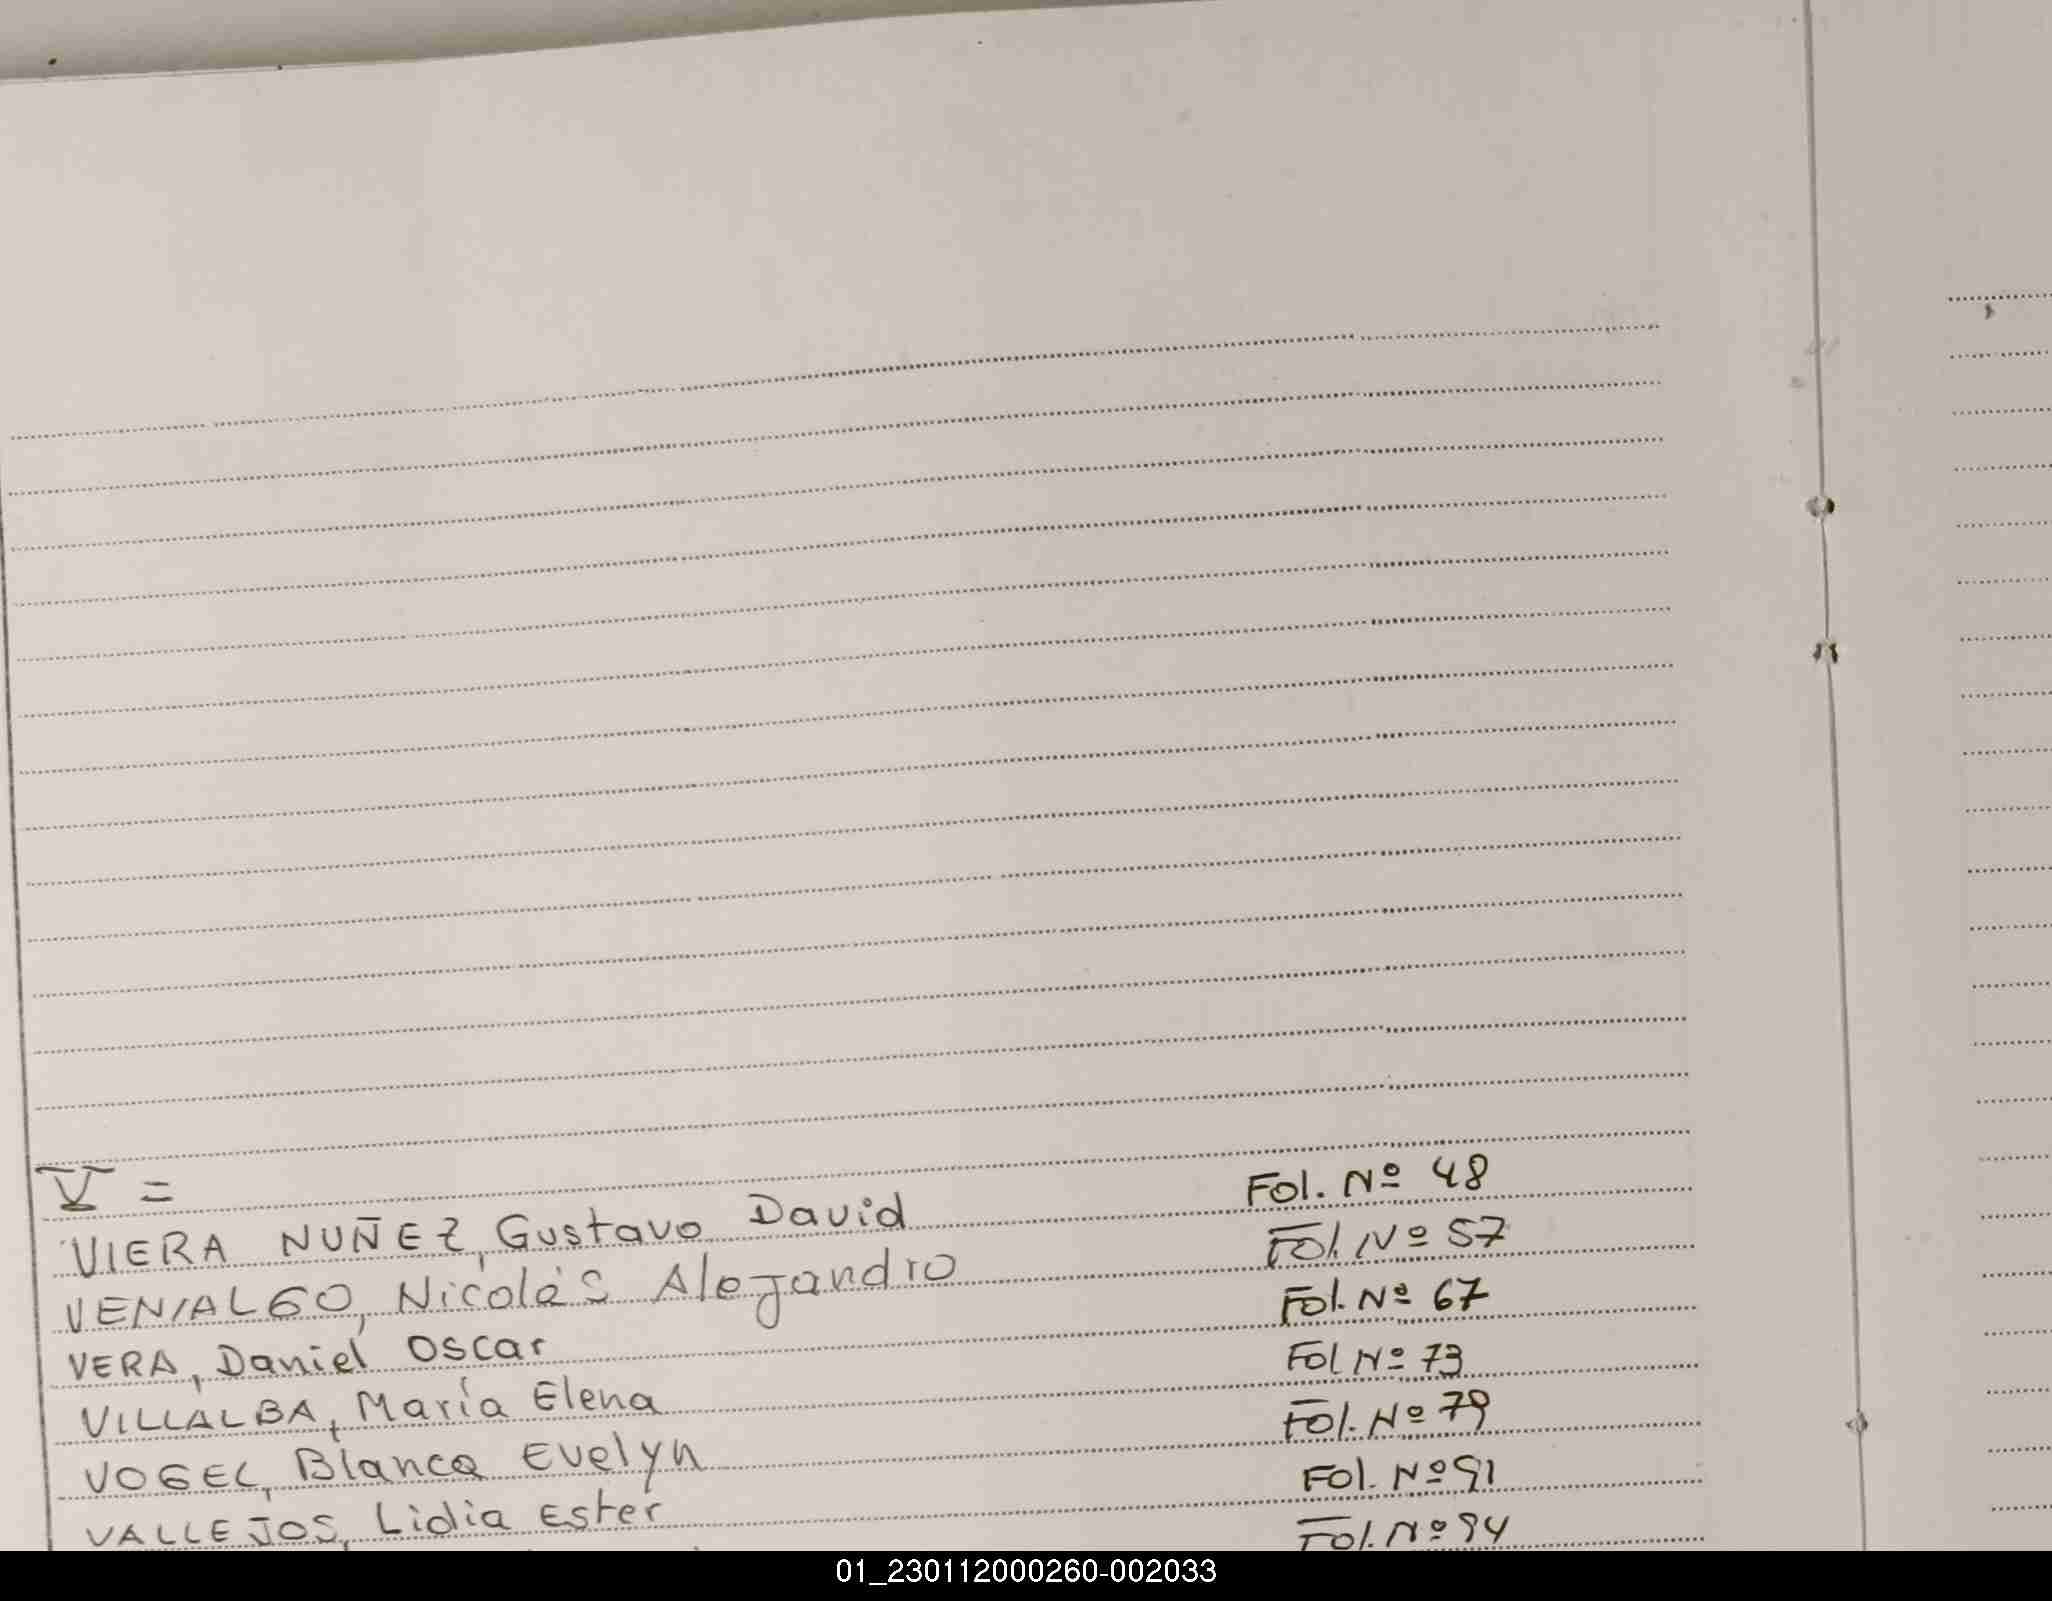 V =
VIERA NUÑEZ, Gustavo David Fol. Nº 48
VENIALGO, Nicolás Alejandro Fol. Nº 57
VERA, Daniel Oscar Fol. Nº 67
VILLALBA, María Elena Fol Nº 73
VOGEL, Blanca Evelyn Fol. Nº 79
VALLEJOS, Lidia Ester Fol. Nº 91
Fol. Nº 94
01_230112000260-002033